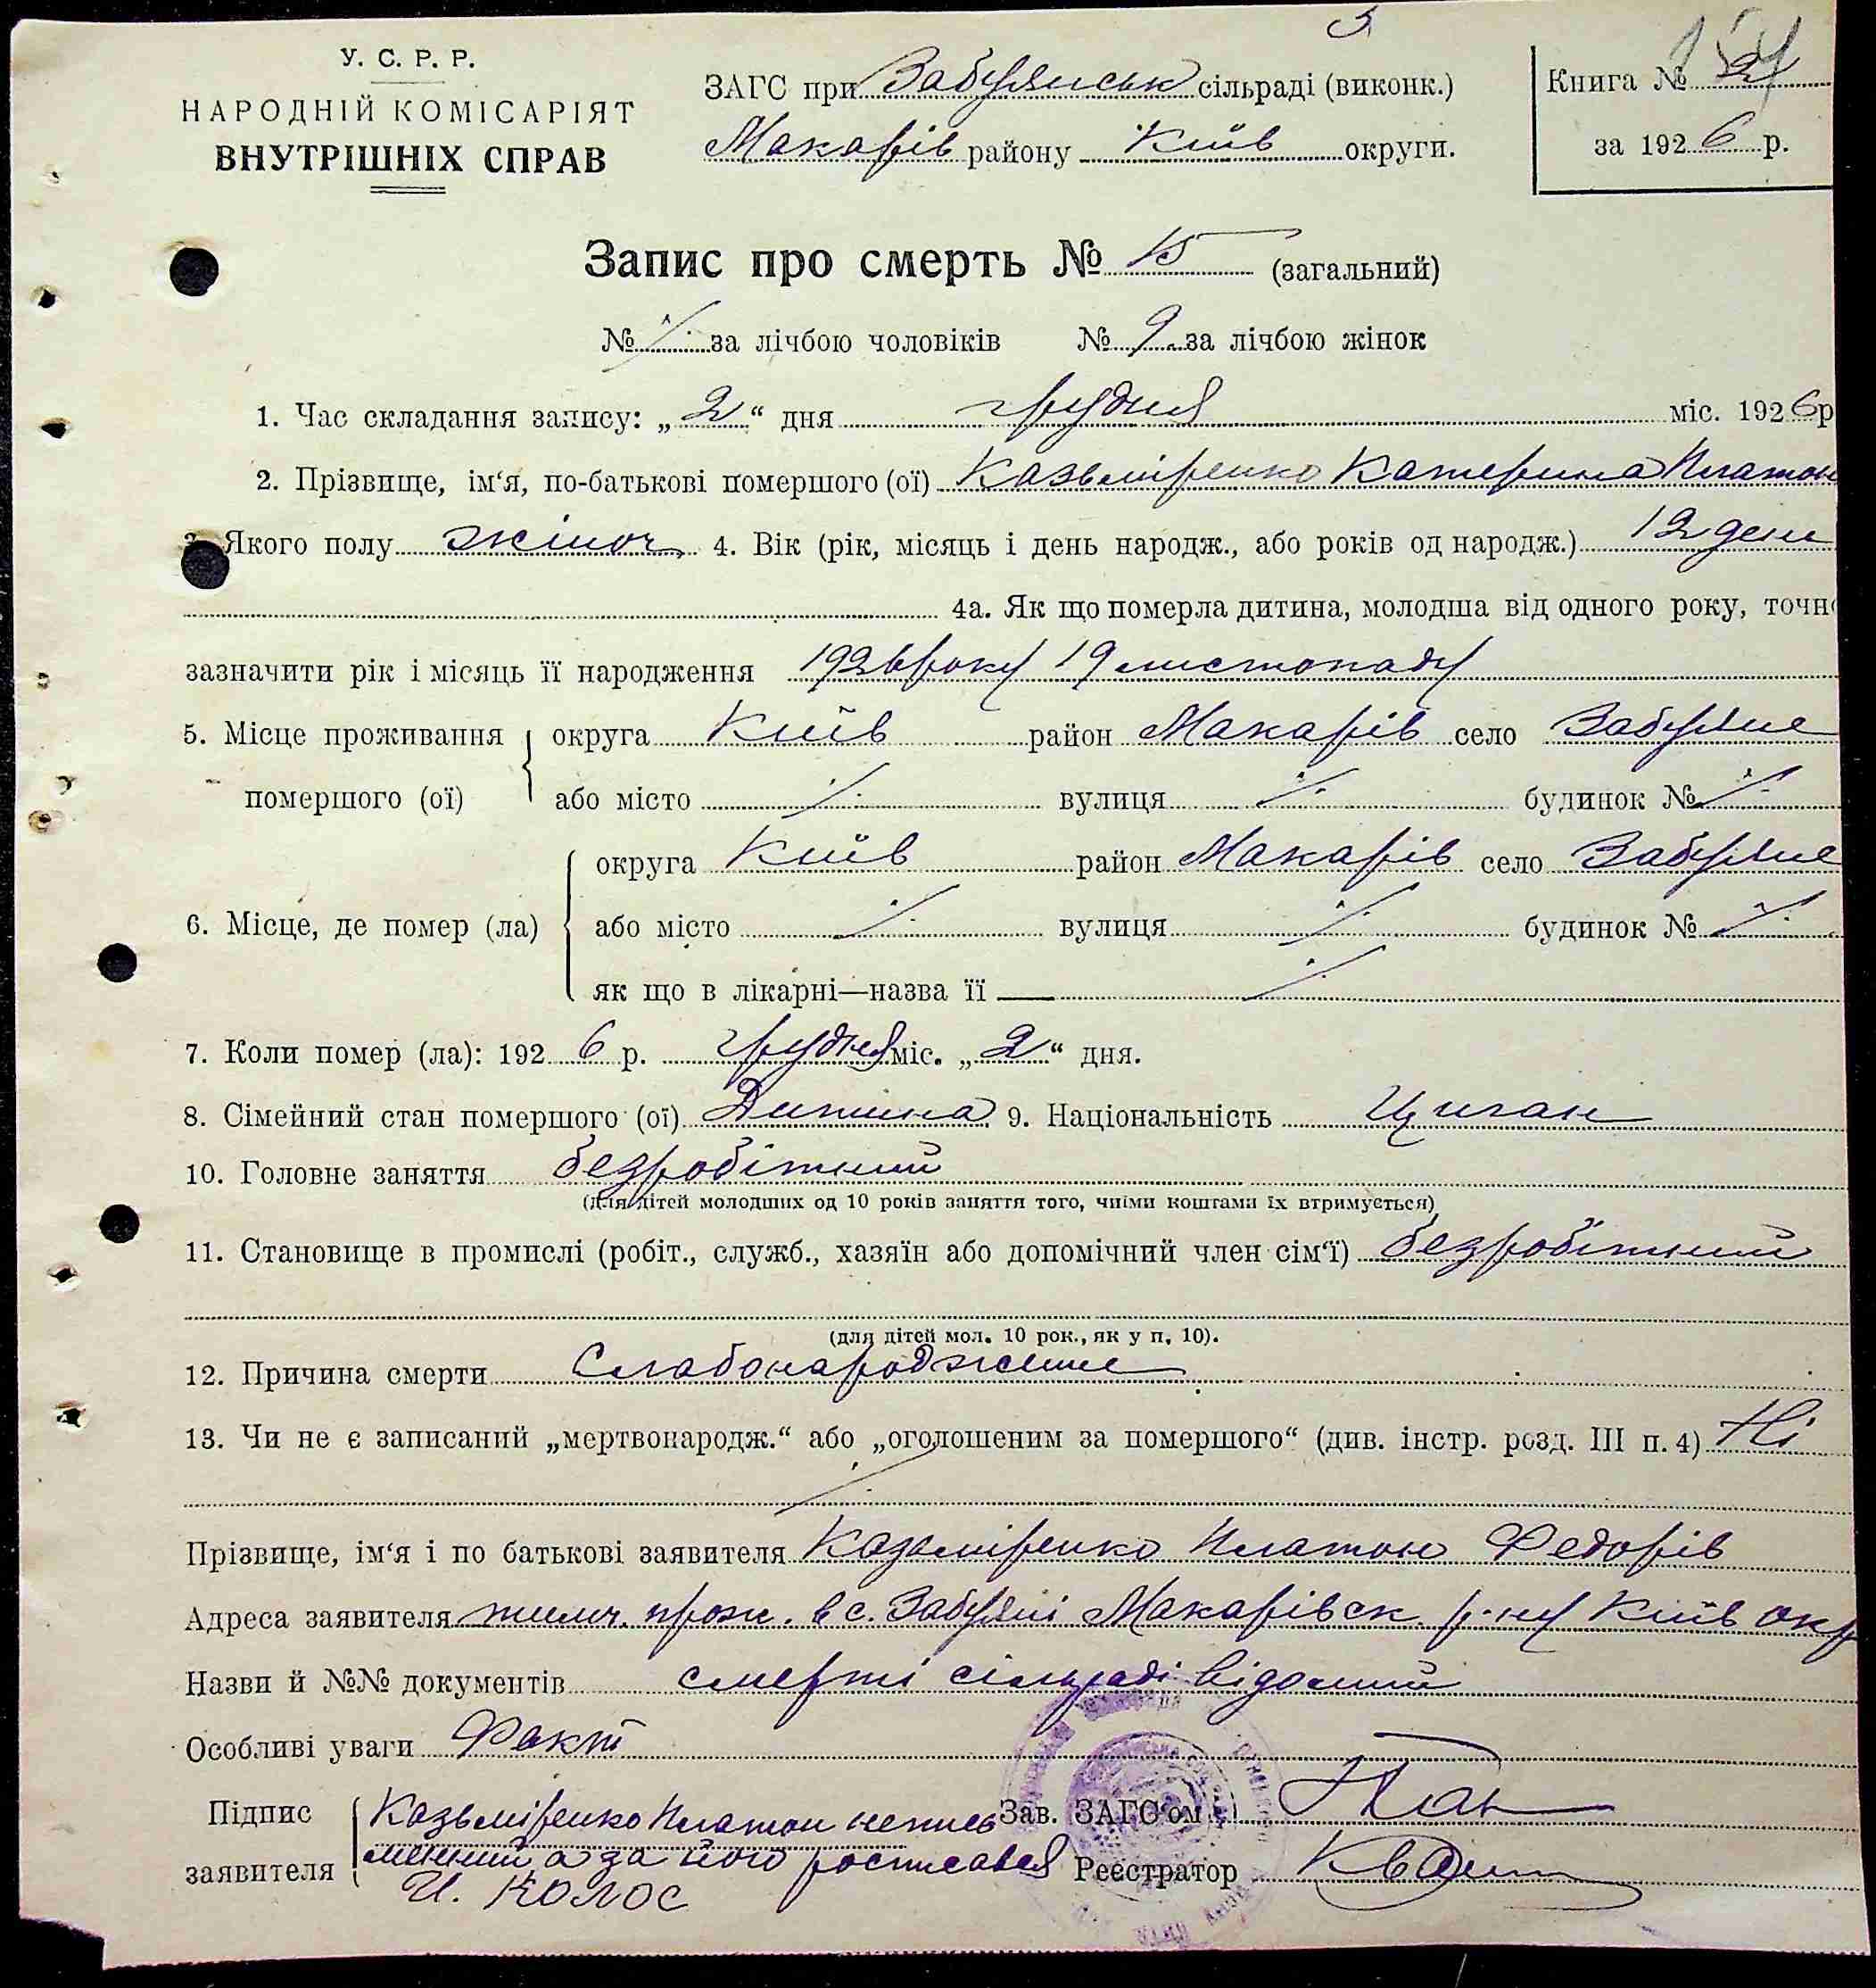 У. С. Р. Р.
НАРОДНІЙ КОМІСАРІЯТ
ВНУТРІШНІХ СПРАВ
ЗАГС при Забуянськ сільраді (виконк.)
Макарів району Київ округи.
Книга №
за 1926 р.
Запис про смерть № 15 (загальний)
№ ·/· за лічбою чоловіків № 9 за лічбою жінок
1. Час складання запису: „2“ дня грудня міс. 1926 р
2. Прізвище, ім‘я, по-батькові помершого (ої) Казьміренко Катерина Платон
3. Якого полу жіноч. 4. Вік (рік, місяць і день народж., або років од народж.) 12 день
4а. Як що померла дитина, молодша від одного року, точно
зазначити рік і місяць її народження 1926 року 19 листопаду
5. Місце проживання округа Київ район Макарів село Забуяне
помершого (ої) або місто ·/· вулиця ·/· будинок № ·/·
округа Київ район Макарів село Забуяне
6. Місце, де помер (ла) або місто ·/· вулиця ·/· будинок № ·/·
як що в лікарні—назва її ·/·
7. Коли помер (ла): 1926 р. грудня міс. „2“ дня.
8. Сімейний стан помершого (ої) Дитина 9. Національність Циган
10. Головне заняття безробітний
(для дітей молодших од 10 років заняття того, чиїми коштами їх втримується)
11. Становище в промислі (робіт., служб., хазяїн або допомічний член сім‘ї) безробітний
(для дітей мол. 10 рок., як у п. 10).
12. Причина смерти Слабонароджене
13. Чи не є записаний „мертвонародж.“ або „оголошеним за помершого“ (див. інстр. розд. III п. 4) Ні
Прізвище, ім‘я і по батькові заявителя Казьміренко Платон Федорів
Адреса заявителя тимч. прож. в с. Забуяні Макарівськ. р-ну Київ окр
Назви й №№ документів смерті сільраді відомий
Особливі уваги Факт
Підпис Казьміренко Платон непись Зав. ЗАГС‘ом
заявителя менний а за його росписався Реєстратор
И. Колос